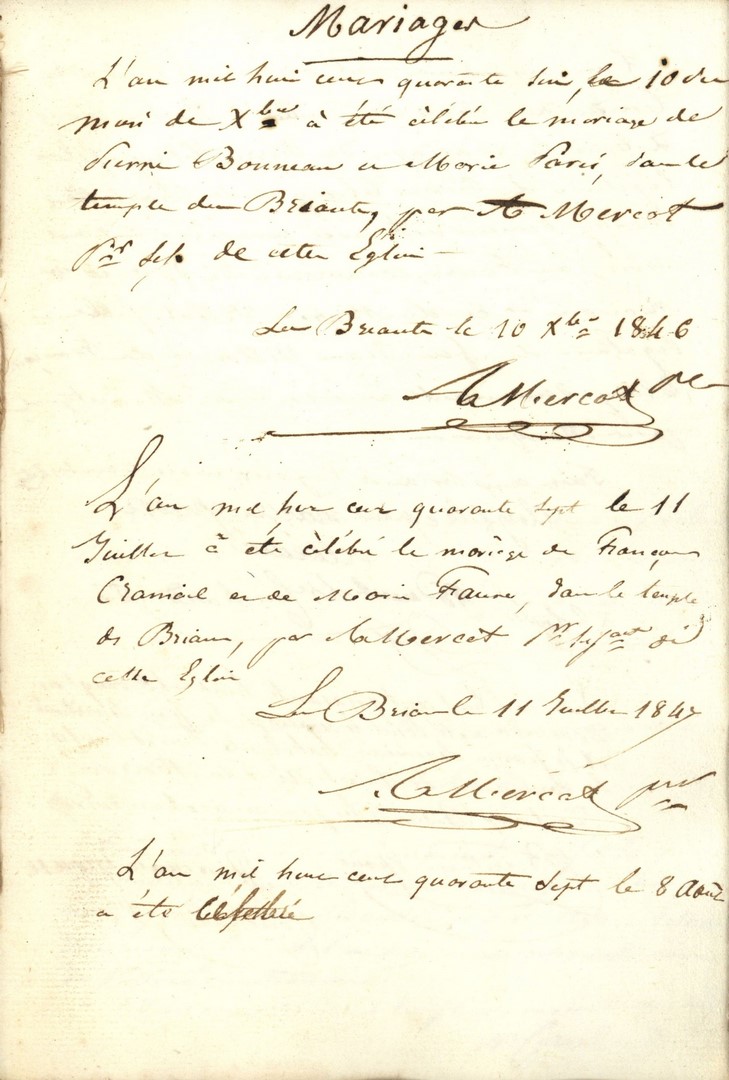 Mariages
L'an mil huit cent quarante six, le 10 du
mois de Xbre à été célébré le mariage de
Pierre Bonneau et Marie Paris, dans le
temple du Briante, par A Mercat
Pr de cette Eglise
Le Briante le 10 Xbre 1846
A Mercat pr
L'an mil huit cent quarante sept le 11
Juillet à été célébré le mariage de François
Cramail et de Marie Faure, dans le temple
de Briante, par A Mercat Pr de
cette Eglise
Le Briante le 11 Juillet 1847
A Mercat pr
L'an mil huit cent quarante sept le 8 Août
a été